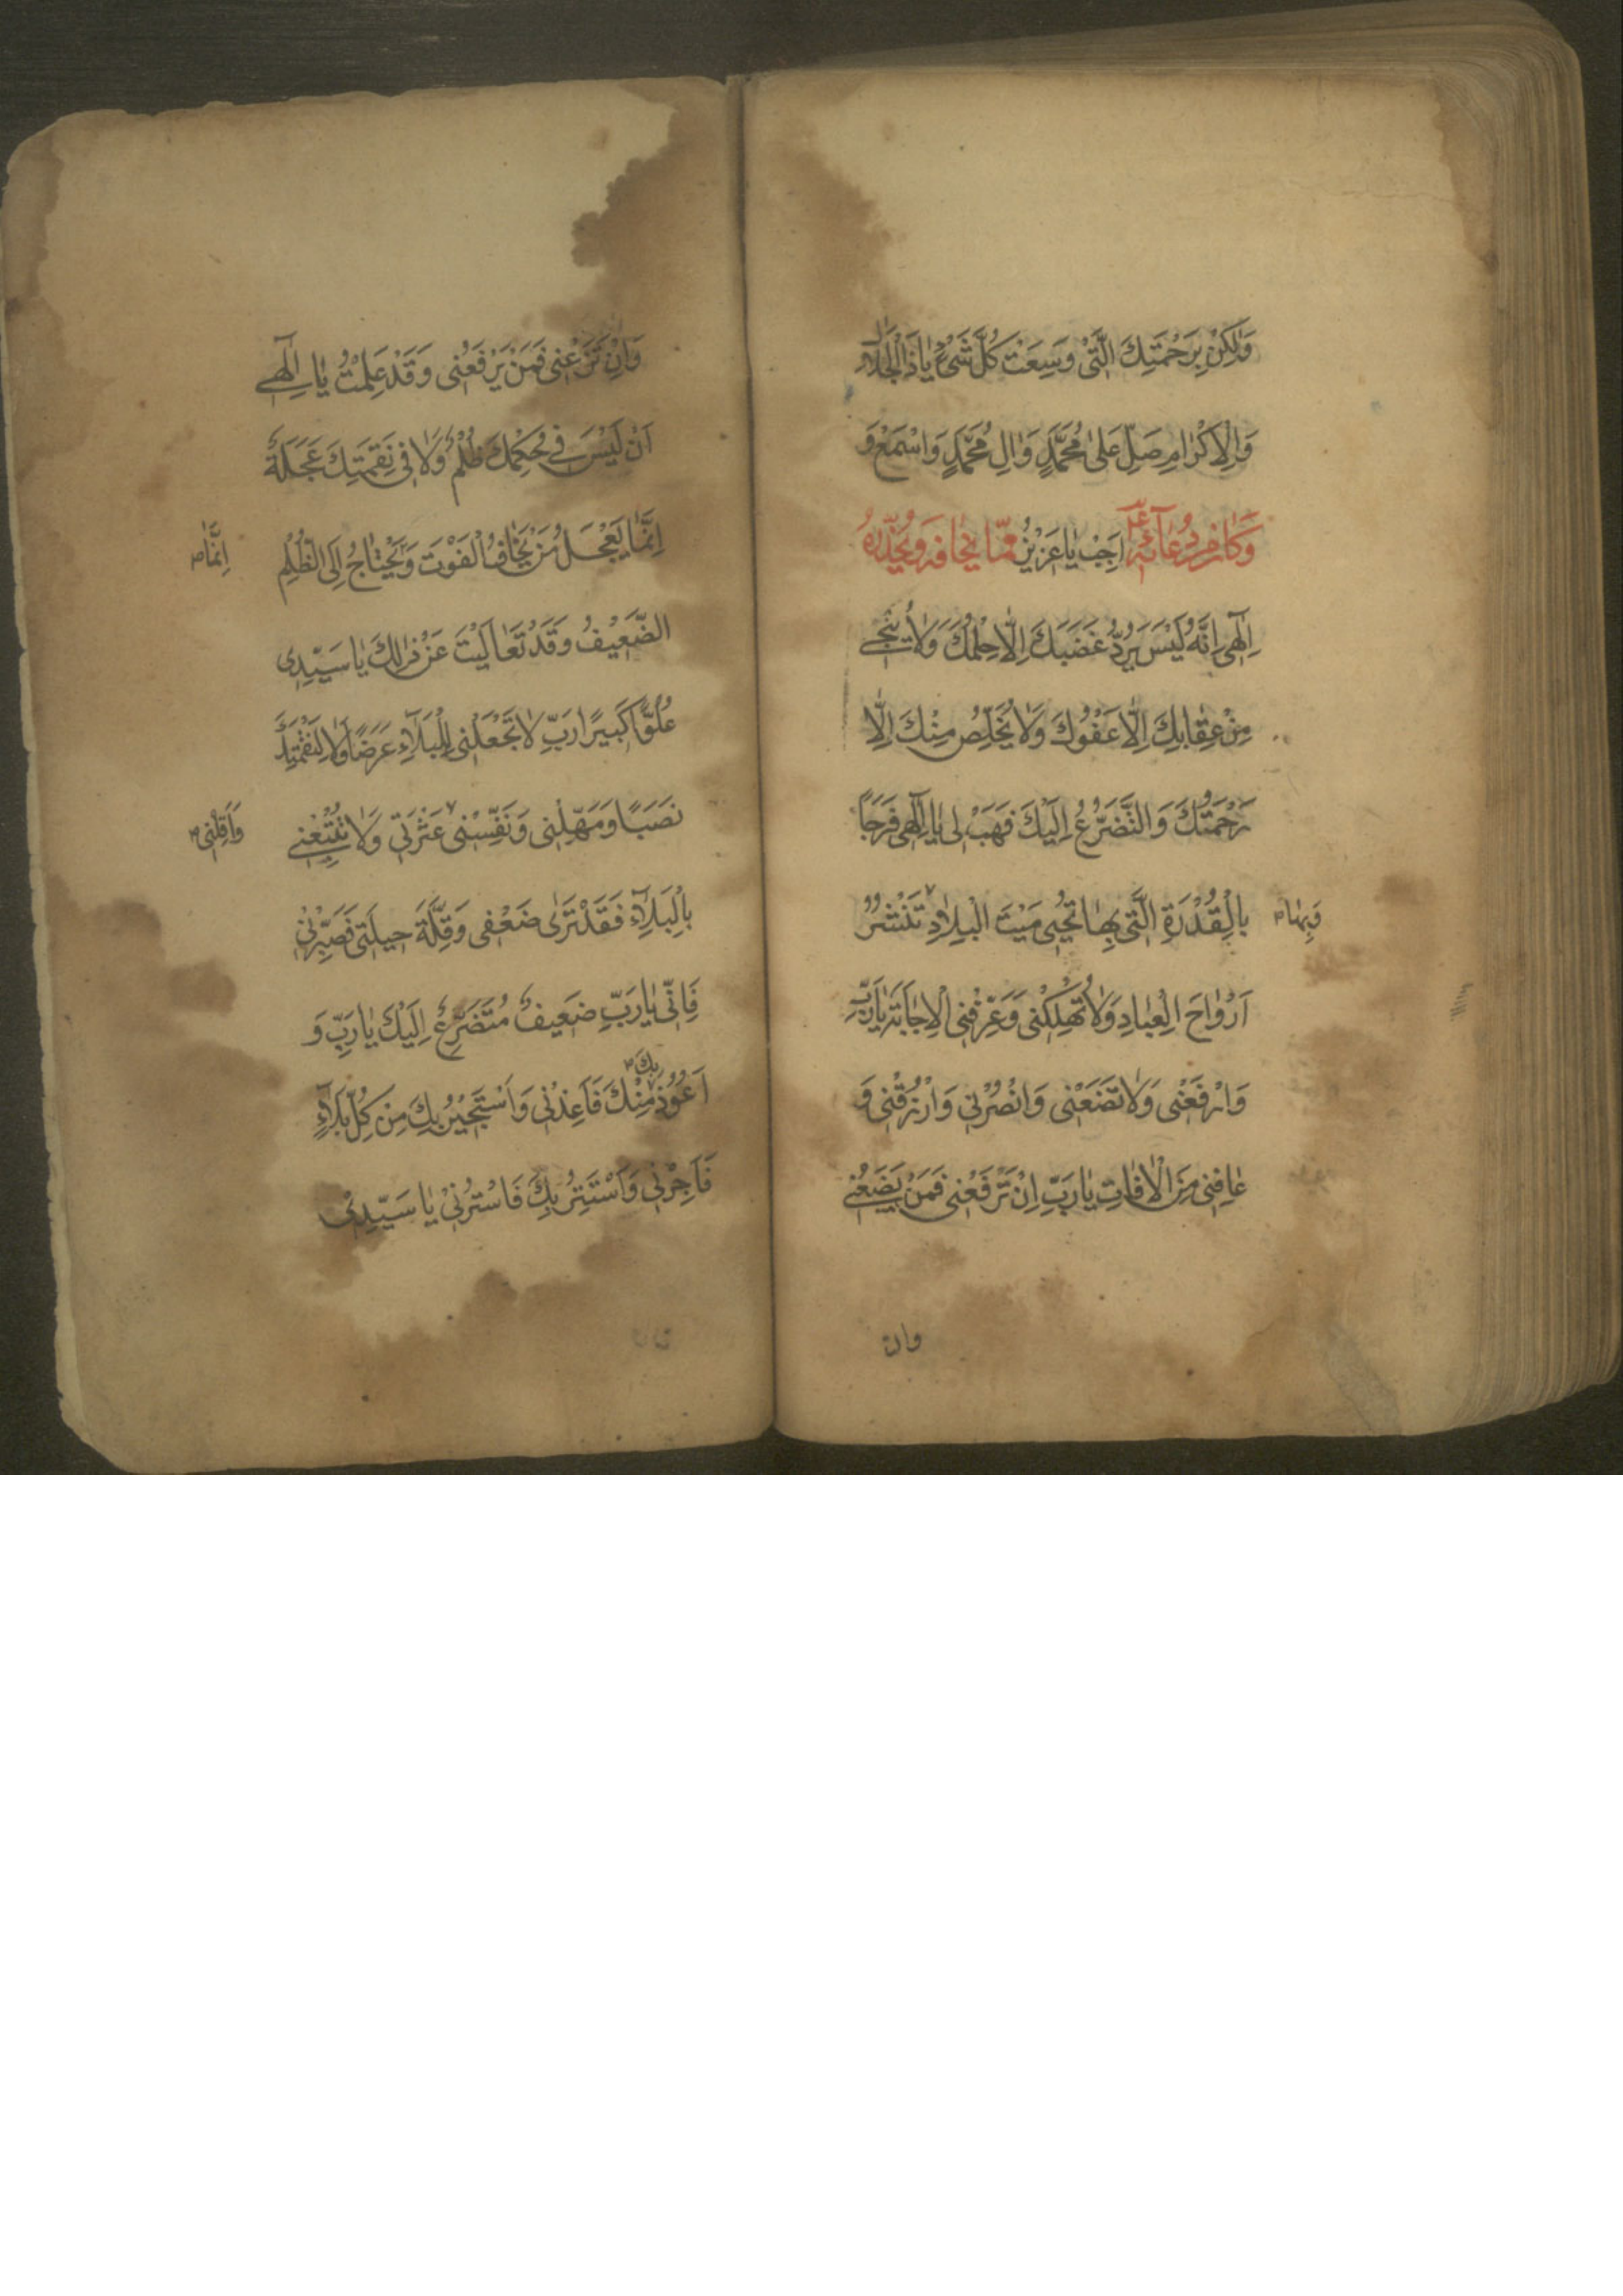 وَلٰكِنْ بِرَحْمَتِكَ الَّتِیْ وَسِعَتْ كُلَّ شَیْءٍ يٰا ذَا الْجَلٰالِ
وَالْاِكْرٰامِ صَلِّ عَلیٰ مُحَمَّدٍ وَاٰلِ مُحَمَّدٍ وَاسْمَعْ وَ
اَجِبْ يٰا عَزِيْزُ وَكَانَ مِنْ دُعَآئِهٖ عَلَ مِمّا يَخٰافُهُ وَيُحَذِّرُهُ
اِلٰهی اِنَّهُ لَيْسَ يَرُدُّ غَضَبَكَ اِلّٰا حِلْمُكَ وَلٰا يُنْجی
مِنْ عِقٰابِكَ اِلّٰا عَفْوُكَ وَلٰا يُخَلِّصُ مِنْكَ اِلّٰا
رَحْمَتُكَ وَالتَّضَرُّعُ اِلَيْكَ فَهَبْ لی يٰا اِلٰهی فَرَجًا
بِالْقُدْرَةِ الَّتی بِهٰا تُحْيی مَيْتَ الْبِلٰادِ تَنْشُرُ
وَبِهٰا
اَرْوٰاحَ الْعِبٰادِ وَلٰا تُهْلِكْنی وَعَرِّفْنی الْاِجٰابَةَ يٰا رَبِّ
وَارْفَعْنی وَلٰا تَضَعْنی وَانْصُرْنی وَارْزُقْنی وَ
عٰافِنی مِنَ الْاٰفٰاتِ يٰا رَبِّ اِنْ تَرْفَعْنی فَمَنْ يَضَعُنی
وان
وَاِنْ تَضَعْنی فَمَنْ يَرْفَعُنی وَقَدْ عَلِمْتُ يٰا اِلٰهی
اَنْ لَيْسَ فی حُكْمِكَ ظُلْمٌ وَلٰا فی نَقِمَتِكَ عَجَلَةٌ
اِنَّمٰا يَعْجَلُ مَنْ يَخٰافُ الْفَوْتَ وَيَحْتٰاجُ اِلَی الظُّلْمِ
اِنَّمٰا
الضَّعِيْفُ وَقَدْ تَعٰالَيْتَ عَنْ ذٰلِكَ يٰا سَيِّدِی
عُلُوًّا كَبيرًا رَبِّ لٰا تَجْعَلْنی لِلْبَلَآءِ غَرَضًا وَلٰا لِنَقِمَتِكَ
نَصَبًا وَمَهِّلْنی وَنَفِّسْنی عَثْرَتی وَلٰا تُتْبِعْنی
وَاَقِلْنی
بِالْبَلَآءِ فَقَدْ تَرٰی ضَعْفی وَقِلَّةَ حيلَتی فَصَبِّرْنی
فَاِنّی يٰا رَبِّ ضَعيفٌ مُتَضَرِّعٌ اِلَيْكَ يٰا رَبِّ وَ
بِكَ
اَعُوْذُ مِنْكَ فَاَعِذْنی وَاَسْتَجيرُ بِكَ مِنْ كُلِّ بَلَآءٍ
فَاَجِرْنی وَاَسْتَتِرُ بِكَ فَاسْتُرْنی يٰا سَيِّدِی